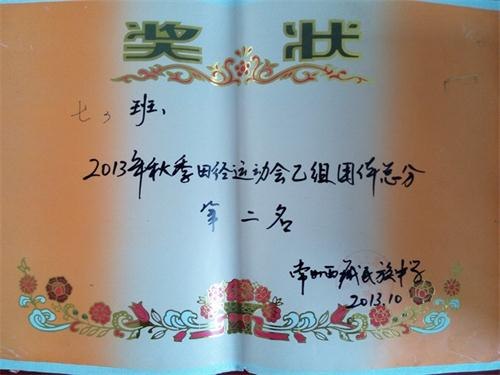 奖状
七3班：
2013年秋季田径运动会乙组团体总分
第二名
南木西藏民族中学
2013.10